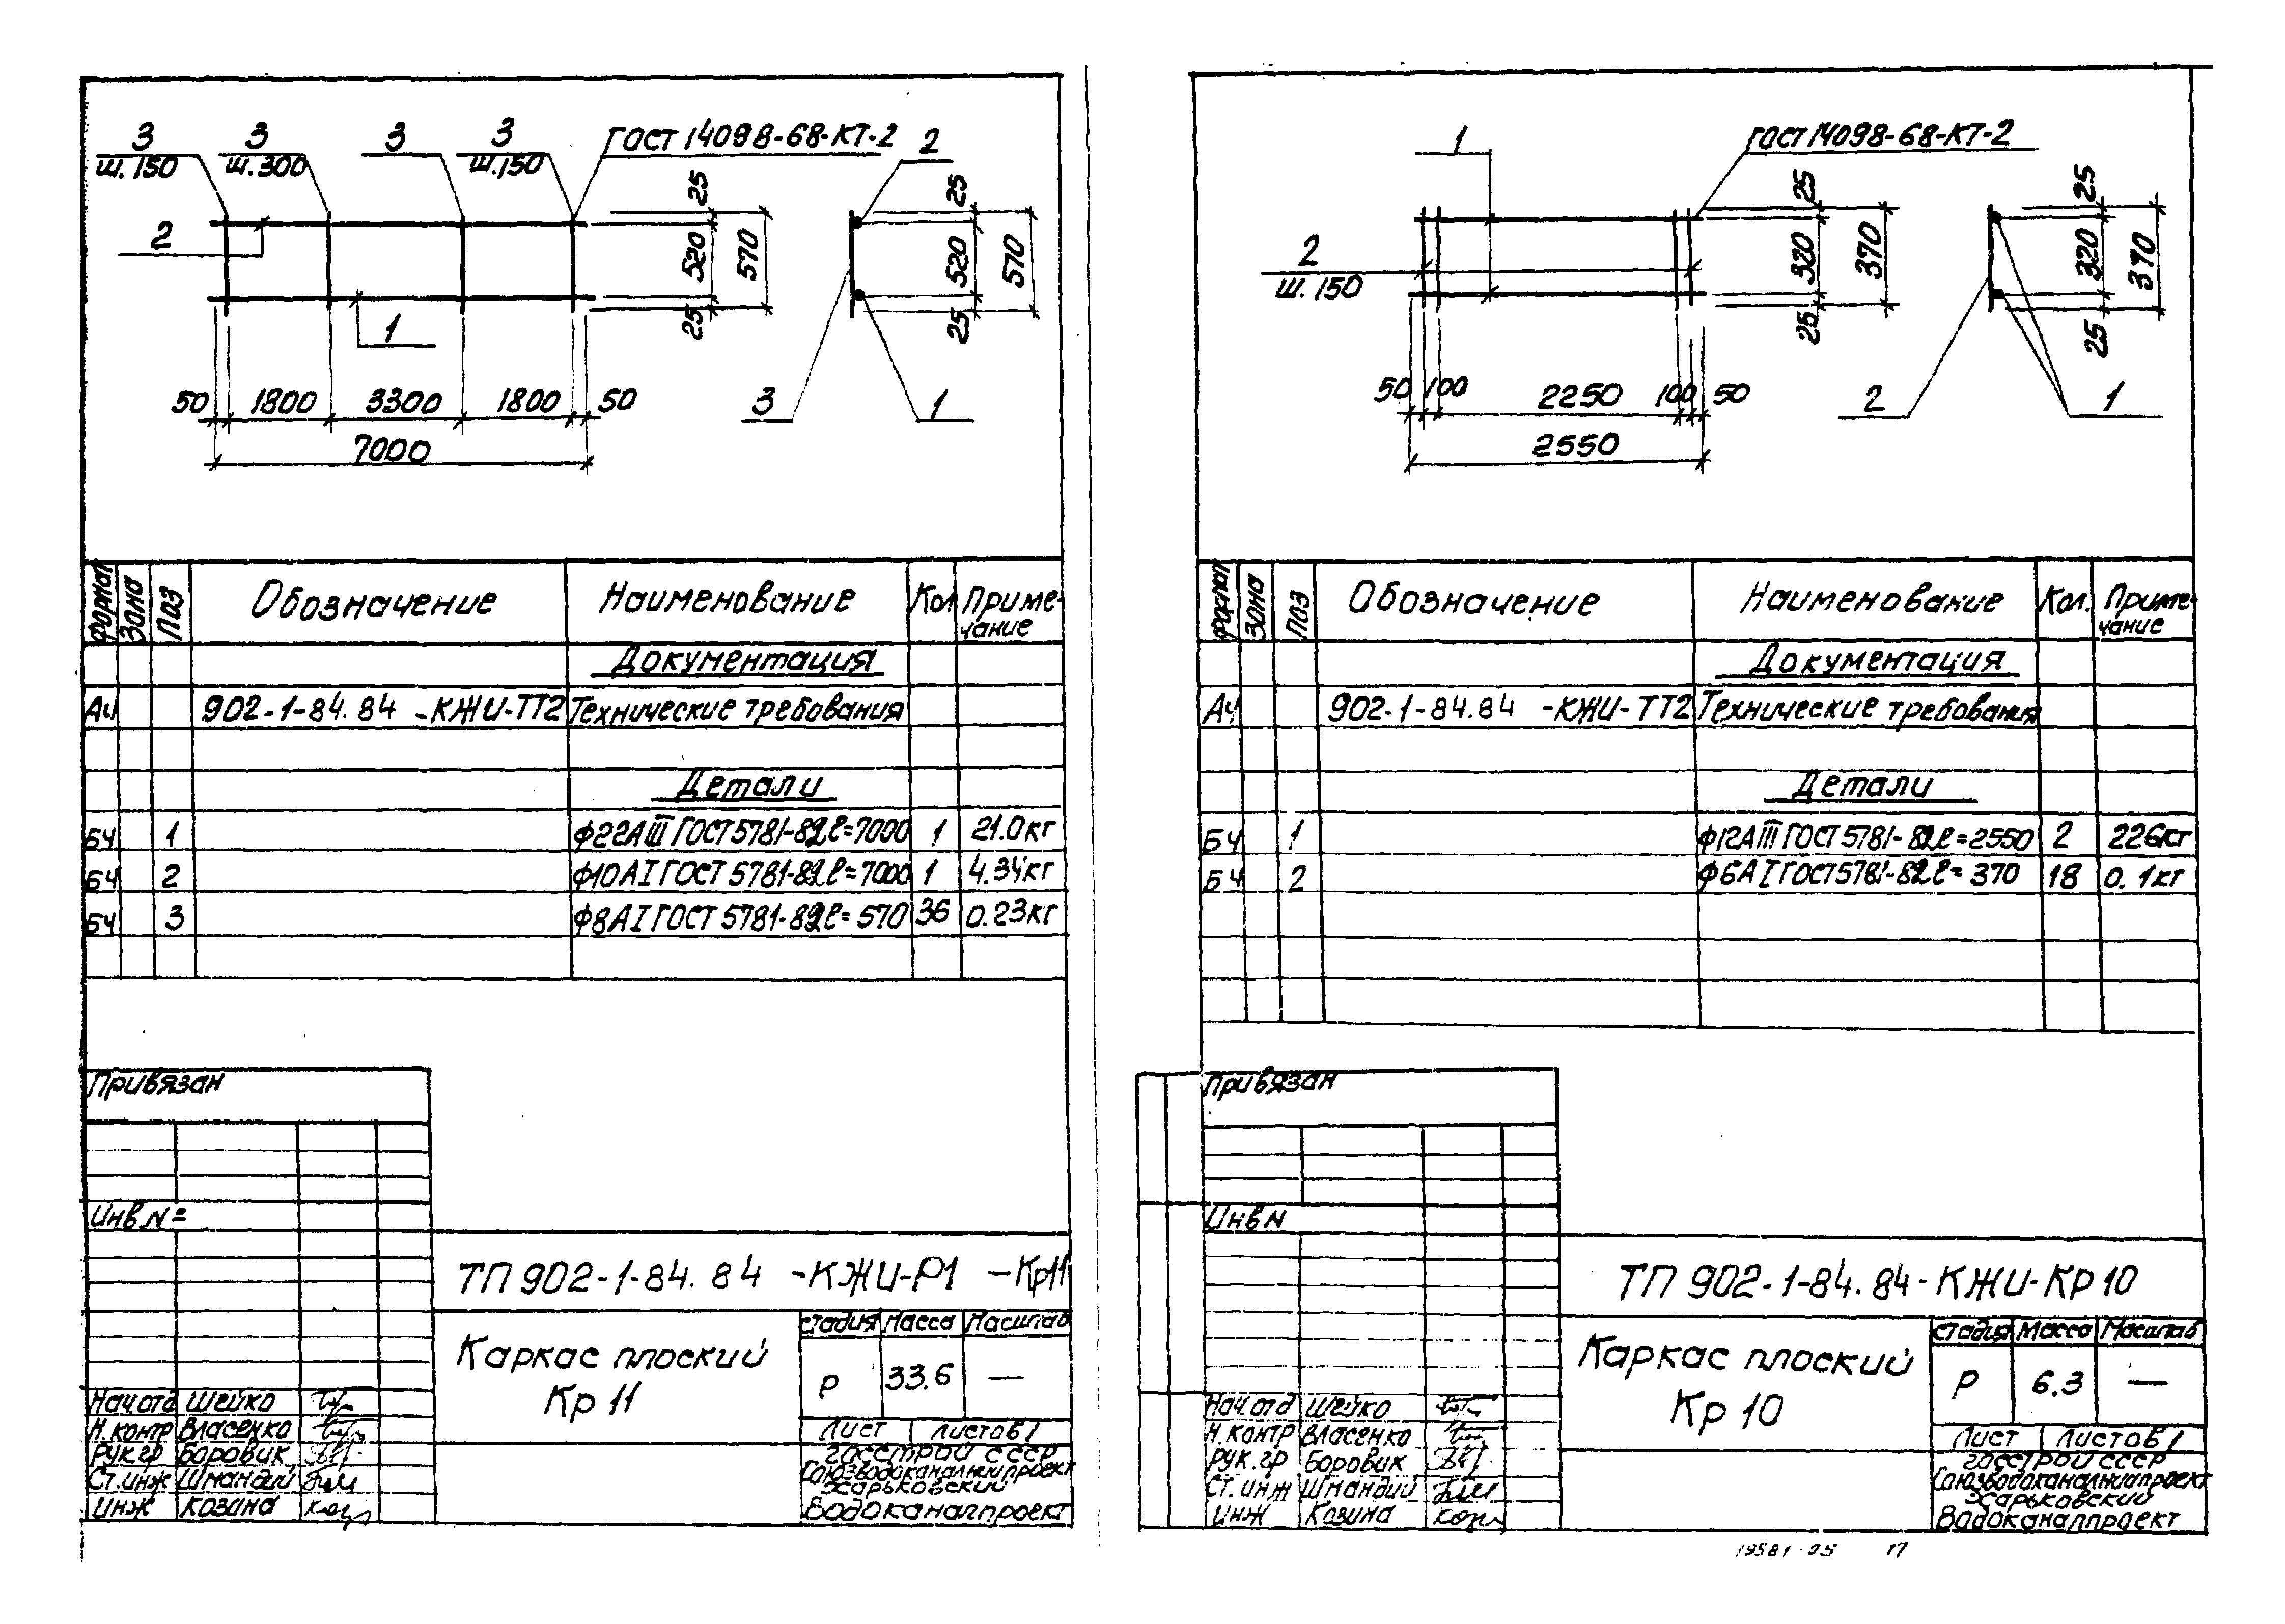 3 3 3 3 ГОСТ 14098-68-КТ-2 2
ш.150 ш.300 ш.150
2
1
25 520 25 570
25 520 25 570
3 1
50 1800 3300 1800 50
7000
Формат Зона Поз Обозначение Наименование Кол Приме-
чание
Документация
А4 902-1-84.84 -КЖИ-ТТ2 Технические требования
Детали
БЧ 1 Ф22АIII ГОСТ 5781-82 ℓ=7000 1 21.0кг
БЧ 2 Ф10АI ГОСТ 5781-82 ℓ=7000 1 4.34кг
БЧ 3 Ф8АI ГОСТ 5781-82 ℓ=570 36 0.23кг
Привязан
Инв №
ТП 902-1-84.84 -КЖИ-Р1 -Кр11
Каркас плоский
Кр 11
Стадия Масса Масштаб
Р 33.6 —
Лист Листов 1
Нач.отд Шейко
Н.контр Власенко
Рук.гр Боровик
Ст.инж Шмандий
Инж Козина
Госстрой СССР
Союзводоканалниипроект
Харьковский
Водоканалпроект
1 ГОСТ 14098-68-КТ-2
2
ш.150
25 320 25 370
25 320 25 370
2 1
50 100 2250 100 50
2550
Формат Зона Поз Обозначение Наименование Кол. Приме-
чание
Документация
А4 902-1-84.84 -КЖИ-ТТ2 Технические требования
Детали
БЧ 1 Ф12АIII ГОСТ 5781-82 ℓ=2550 2 2.26кг
БЧ 2 Ф6АI ГОСТ 5781-82 ℓ=370 18 0.1кг
Привязан
Инв N
ТП 902-1-84.84-КЖИ-Кр10
Каркас плоский
Кр 10
Стадия Масса Масштаб
Р 6.3 —
Лист Листов 1
Нач.отд Шейко
Н.контр Власенко
Рук.гр Боровик
Ст.инж Шмандий
Инж Козина
Госстрой СССР
Союзводоканалниипроект
Харьковский
Водоканалпроект
19581-05 17